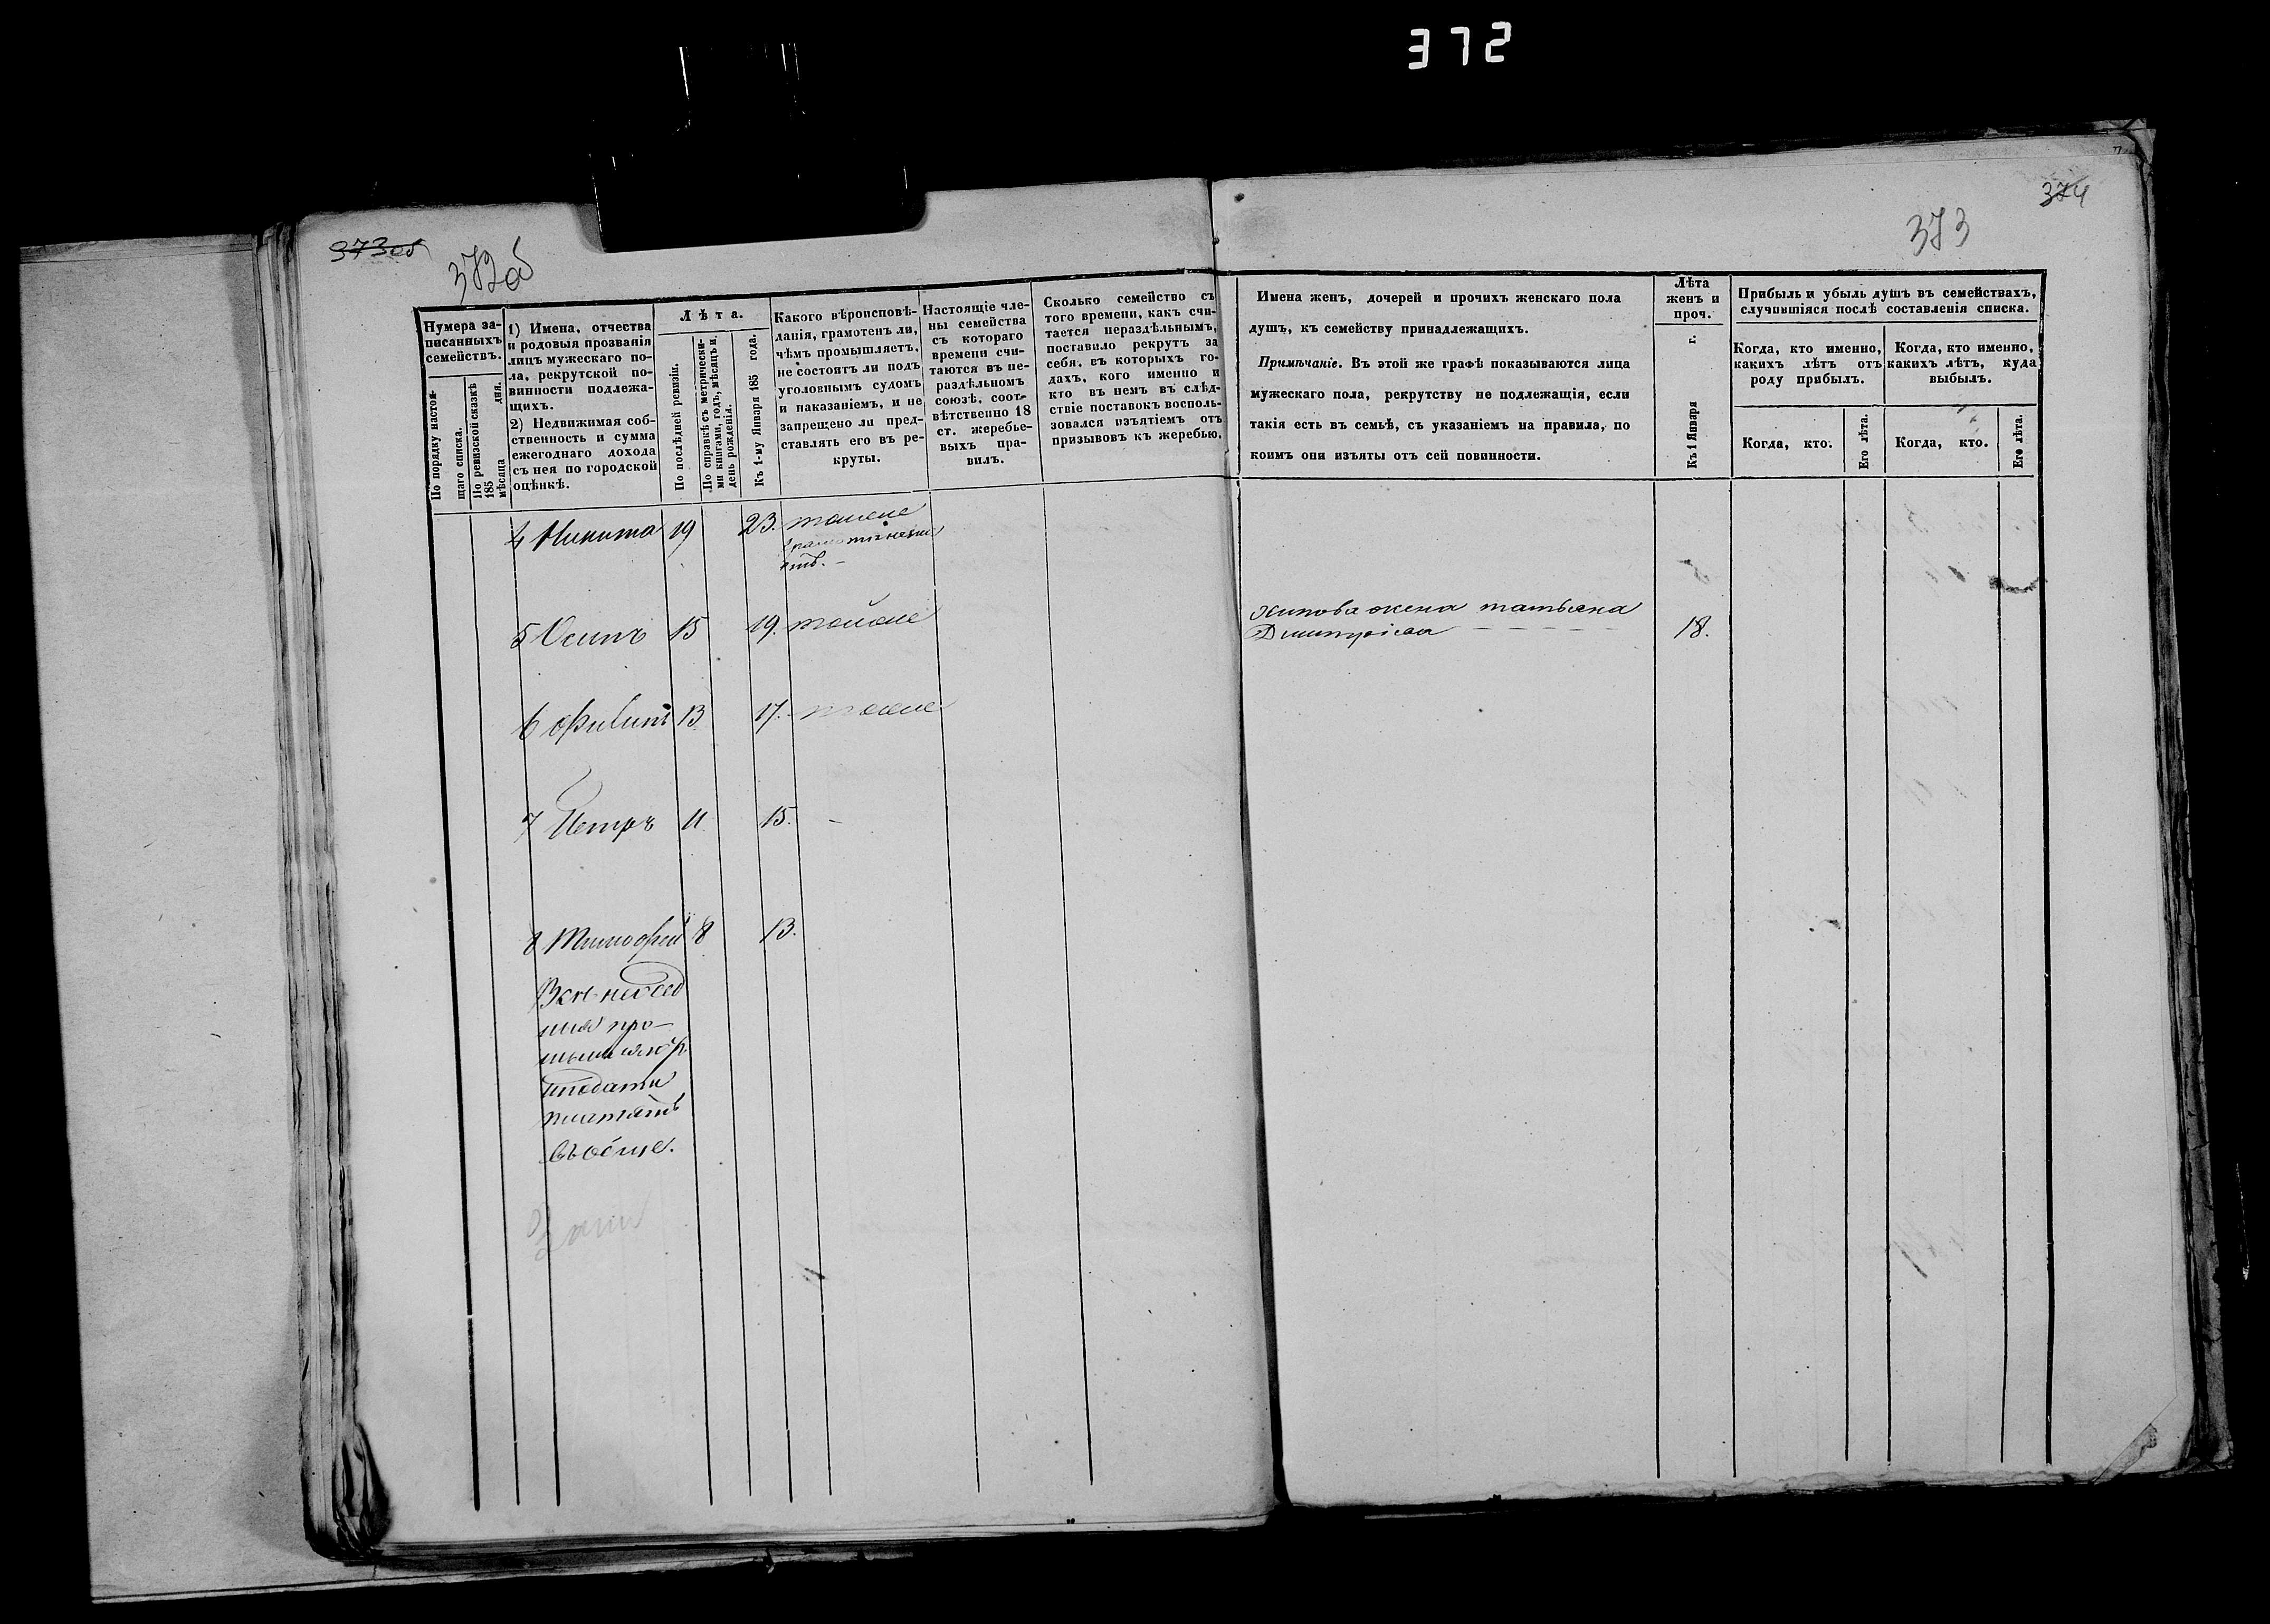 372
373об
372об
374
373
Нумера за-
писанныхъ
семействъ.
По порядку настоя-
щаго списка.
По ревизской сказкѣ
185 дня.
мѣсяца
1) Имена, отчества
и родовыя прозванія
лицъ мужескаго по-
ла, рекрутской по-
винности подлежа-
щихъ.
2) Недвижимая соб-
ственность и сумма
ежегоднаго дохода
съ нея по городской
оцѣнкѣ.
Лѣта.
По послѣдней ревизіи.
По справкѣ съ метрически-
ми книгами, годъ, мѣсяцъ и
день рожденія.
Къ 1-му Января 185 года.
Какого вѣроисповѣ-
данія, грамотенъ ли,
чѣмъ промышляетъ,
не состоитъ ли подъ
уголовнымъ судомъ
и наказаніемъ, и не
запрещено ли пред-
ставлять его въ ре-
круты.
Настоящіе чле-
ны семейства
съ котораго
времени счи-
таются въ не-
раздѣльномъ
союзѣ, соот-
вѣтственно 18
ст. жеребье-
выхъ пра-
вилъ.
Сколько семейство съ
того времени, какъ счи-
тается нераздѣльнымъ,
поставило рекрутъ за
себя, въ которыхъ го-
дахъ, кого именно и
кто въ немъ въ слѣд-
ствіе поставокъ восполь-
зовался изъятіемъ отъ
призывовъ къ жеребью.
Имена женъ, дочерей и прочихъ женскаго пола
душъ, къ семейству принадлежащихъ.
Примѣчаніе. Въ этой же графѣ показываются лица
мужескаго пола, рекрутству не подлежащія, если
такія есть въ семьѣ, съ указаніемъ на правила, по
коимъ они изъяты отъ сей повинности.
Лѣта
женъ и
проч.
Къ 1 Января г.
Прибыль и убыль душъ въ семействахъ,
случившіяся послѣ составленія списка.
Когда, кто именно,
какихъ лѣтъ отъ
роду прибылъ.
Когда, кто именно,
какихъ лѣтъ, куда
выбылъ.
Когда, кто.
Его лѣта.
Когда, кто.
Его лѣта.
4 Никита 19 23. тоже
5 Осипъ 15 19. тоже
жена татьяна
18.
6 Филипъ 13 17. тоже
7 Петръ 11 15. -
8 Тимофей 8 13.
про-
подати
платятъ
въобще.